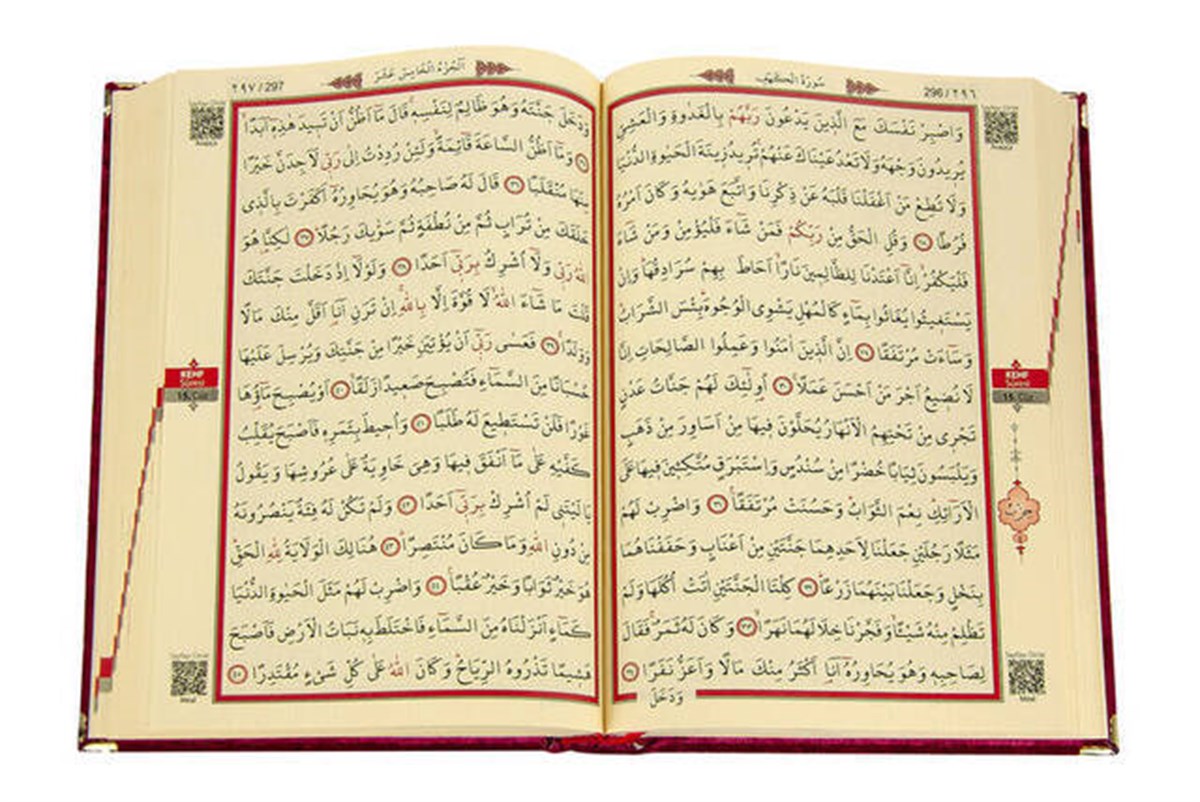 سُورَةُ الْكَهْفِ
296 / ٢٩٦
وَاصْبِرْ نَفْسَكَ مَعَ الَّذِينَ يَدْعُونَ رَبَّهُمْ بِالْغَدٰوةِ وَالْعَشِيِّ
يُرِيدُونَ وَجْهَهُ وَلَا تَعْدُ عَيْنَاكَ عَنْهُمْ تُرِيدُ زِينَةَ الْحَيٰوةِ الدُّنْيَا
وَلَا تُطِعْ مَنْ اَغْفَلْنَا قَلْبَهُ عَنْ ذِكْرِنَا وَاتَّبَعَ هَوٰيهُ وَكَانَ اَمْرُهُ
فُرُطًا ﴿٢٨﴾ وَقُلِ الْحَقُّ مِنْ رَبِّكُمْ فَمَنْ شَٓاءَ فَلْيُؤْمِنْ وَمَنْ شَٓاءَ
فَلْيَكْفُرْ اِنَّٓا اَعْتَدْنَا لِلظَّالِمِينَ نَارًا اَحَاطَ بِهِمْ سُرَادِقُهَا وَاِنْ
يَسْتَغِيثُوا يُغَاثُوا بِمَٓاءٍ كَالْمُهْلِ يَشْوِي الْوُجُوهَ بِئْسَ الشَّرَابُ
وَسَٓاءَتْ مُرْتَفَقًا ﴿٢٩﴾ اِنَّ الَّذِينَ اٰمَنُوا وَعَمِلُوا الصَّالِحَاتِ اِنَّا
لَا نُضِيعُ اَجْرَ مَنْ اَحْسَنَ عَمَلًا ﴿٣٠﴾ اُولٰٓئِكَ لَهُمْ جَنَّاتُ عَدْنٍ
تَجْرِي مِنْ تَحْتِهِمُ الْاَنْهَارُ يُحَلَّوْنَ فِيهَا مِنْ اَسَاوِرَ مِنْ ذَهَبٍ
وَيَلْبَسُونَ ثِيَابًا خُضْرًا مِنْ سُنْدُسٍ وَاِسْتَبْرَقٍ مُتَّكِئِينَ فِيهَا عَلَى
الْاَرَٓائِكِ نِعْمَ الثَّوَابُ وَحَسُنَتْ مُرْتَفَقًا ﴿٣١﴾ وَاضْرِبْ لَهُمْ
مَثَلًا رَجُلَيْنِ جَعَلْنَا لِاَحَدِهِمَا جَنَّتَيْنِ مِنْ اَعْنَابٍ وَحَفَفْنَاهُمَا
بِنَخْلٍ وَجَعَلْنَا بَيْنَهُمَا زَرْعًا ﴿٣٢﴾ كِلْتَا الْجَنَّتَيْنِ اٰتَتْ اُكُلَهَا وَلَمْ
تَظْلِمْ مِنْهُ شَيْئًا وَفَجَّرْنَا خِلَالَهُمَا نَهَرًا ﴿٣٣﴾ وَكَانَ لَهُ ثَمَرٌ فَقَالَ
لِصَاحِبِهِ وَهُوَ يُحَاوِرُهُٓ اَنَا اَكْثَرُ مِنْكَ مَالًا وَاَعَزُّ نَفَرًا ﴿٣٤﴾
وَدَخَلَ
KEHF
Sûresi
15. Cüz
حزب
اَلْجُزْءُ الْخَامِسَ عَشَرَ
٢٩٧ / 297
وَدَخَلَ جَنَّتَهُ وَهُوَ ظَالِمٌ لِنَفْسِهِ قَالَ مَٓا اَظُنُّ اَنْ تَبِيدَ هٰذِهِٓ اَبَدًا
﴿٣٥﴾ وَمَٓا اَظُنُّ السَّاعَةَ قَٓائِمَةً وَلَئِنْ رُدِدْتُ اِلٰى رَبِّي لَاَجِدَنَّ خَيْرًا
مِنْهَا مُنْقَلَبًا ﴿٣٦﴾ قَالَ لَهُ صَاحِبُهُ وَهُوَ يُحَاوِرُهُٓ اَكَفَرْتَ بِالَّذِي
خَلَقَكَ مِنْ تُرَابٍ ثُمَّ مِنْ نُطْفَةٍ ثُمَّ سَوّٰيكَ رَجُلًا ﴿٣٧﴾ لٰكِنَّا هُوَ
اللّٰهُ رَبِّي وَلَٓا اُشْرِكُ بِرَبِّٓي اَحَدًا ﴿٣٨﴾ وَلَوْلَٓا اِذْ دَخَلْتَ جَنَّتَكَ
قُلْتَ مَا شَٓاءَ اللّٰهُ لَا قُوَّةَ اِلَّا بِاللّٰهِ اِنْ تَرَنِ اَنَا اَقَلَّ مِنْكَ مَالًا
وَوَلَدًا ﴿٣٩﴾ فَعَسٰى رَبِّٓي اَنْ يُؤْتِيَنِ خَيْرًا مِنْ جَنَّتِكَ وَيُرْسِلَ عَلَيْهَا
حُسْبَانًا مِنَ السَّمَٓاءِ فَتُصْبِحَ صَعِيدًا زَلَقًا ﴿٤٠﴾ اَوْ يُصْبِحَ مَٓاؤُهَا
غَوْرًا فَلَنْ تَسْتَطِيعَ لَهُ طَلَبًا ﴿٤١﴾ وَاُحِيطَ بِثَمَرِهِ فَاَصْبَحَ يُقَلِّبُ
كَفَّيْهِ عَلٰى مَٓا اَنْفَقَ فِيهَا وَهِيَ خَاوِيَةٌ عَلٰى عُرُوشِهَا وَيَقُولُ
يَا لَيْتَنِي لَمْ اُشْرِكْ بِرَبِّٓي اَحَدًا ﴿٤٢﴾ وَلَمْ تَكُنْ لَهُ فِئَةٌ يَنْصُرُونَهُ
مِنْ دُونِ اللّٰهِ وَمَا كَانَ مُنْتَصِرًا ﴿٤٣﴾ هُنَالِكَ الْوَلَايَةُ لِلّٰهِ الْحَقِّ
هُوَ خَيْرٌ ثَوَابًا وَخَيْرٌ عُقْبًا ﴿٤٤﴾ وَاضْرِبْ لَهُمْ مَثَلَ الْحَيٰوةِ الدُّنْيَا
كَمَٓاءٍ اَنْزَلْنَاهُ مِنَ السَّمَٓاءِ فَاخْتَلَطَ بِهِ نَبَاتُ الْاَرْضِ فَاَصْبَحَ
هَشِيمًا تَذْرُوهُ الرِّيَاحُ وَكَانَ اللّٰهُ عَلٰى كُلِّ شَيْءٍ مُقْتَدِرًا ﴿٤٥﴾
KEHF
Sûresi
15. Cüz